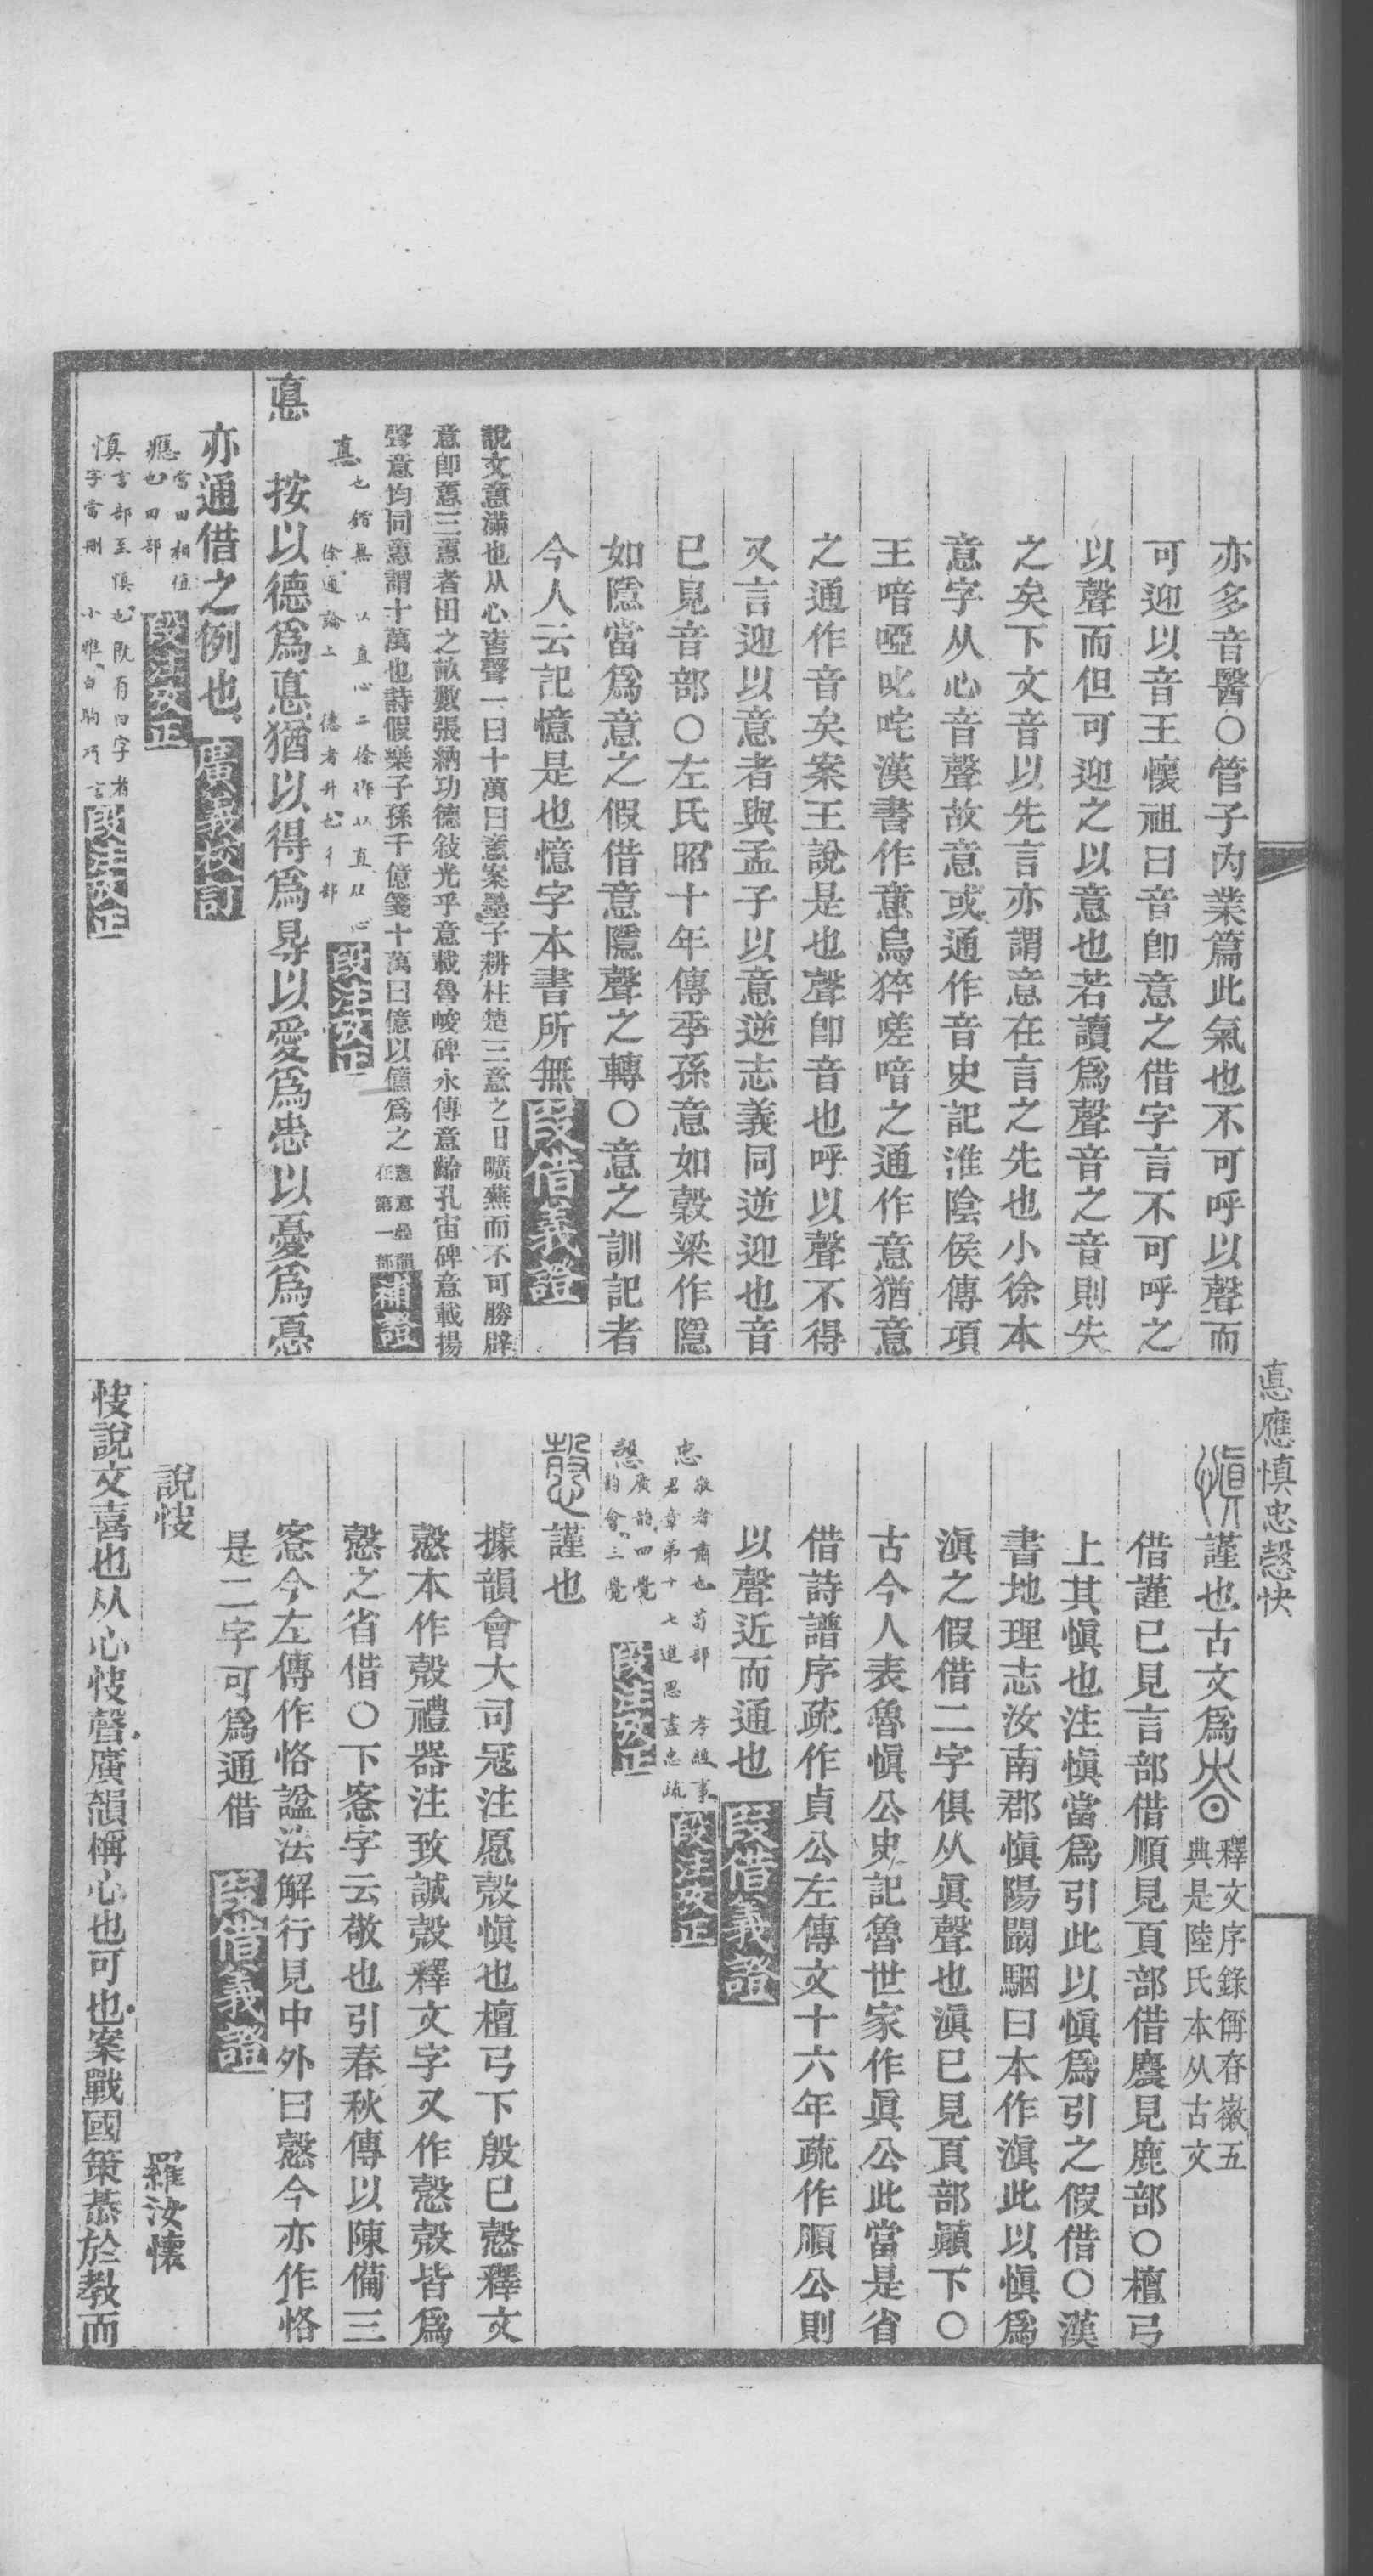 亦多音醫○管子內業篇此氣也不可呼以聲而
可迎以音王懷祖曰音卽意之借字言不可呼之
以聲而但可迎之以意也若讀爲聲音之音則失
之矣下文音以先言亦謂意在言之先也小徐本
意字从心音聲故意或通作音史記淮陰侯傳項
王喑啞叱咤漢書作意烏猝嗟喑之通作意猶意
之通作音矣案王說是也聲卽音也呼以聲不得
又言迎以意者與孟子以意逆志義同逆迎也音
已見音部○左氏昭十年傳季孫意如穀梁作隱
如隱當爲意之假借意隱聲之轉○意之訓記者
今人云記憶是也憶字本書所無段借義證
說文意滿也从心啻聲一曰十萬曰意案墨子耕柱楚三意之田曠蕪而不可勝辟
意卽意三意者田之畝數張納功德敍光乎意載魯峻碑永傳意齡孔宙碑意載揚
聲意均同意謂十萬也詩假樂子孫千億箋十萬曰億以億爲之 在第一部補證
悳 按以德爲悳猶以得爲㝵以愛爲㤅以憂爲惪
亦通借之例也廣義校訂
應當田相値也田部 段注攷正
慎言部至慎也既有旧字者字當刪 小雅白駒巧言段注攷正
悳應慎忠愨快
慎 謹也古文爲 釋文序錄偁昚徽五典是陸氏本从古文
借謹已見言部借順見頁部借麎見鹿部○檀弓
上其慎也注慎當爲引此以慎爲引之假借○漢
書地理志汝南郡慎陽闞駰曰本作滇此以慎爲
滇之假借二字俱从眞聲也滇已見頁部顚下○
古今人表魯慎公史記魯世家作眞公此當是省
借詩譜序疏作貞公左傳文十六年疏作順公則
以聲近而通也段借義證
忠 敬者肅也茍部 孝經事君章第十七進思盡忠疏段注攷正
愨 廣韵四覺韵會三覺 段注攷正
愨 謹也
據韻會大司寇注愿愨慎也檀弓下殷已愨釋文
愨本作殼禮器注致誠愨釋文字又作愨殼皆爲
愨之省借○下愙字云敬也引春秋傳以陳備三
愙今左傳作恪諡法解行見中外曰愨今亦作恪
是二字可爲通借 段借義證
說㤦 羅汝懷
㤦說文喜也从心㤦聲廣韻稱心也可也案戰國策恭於教而